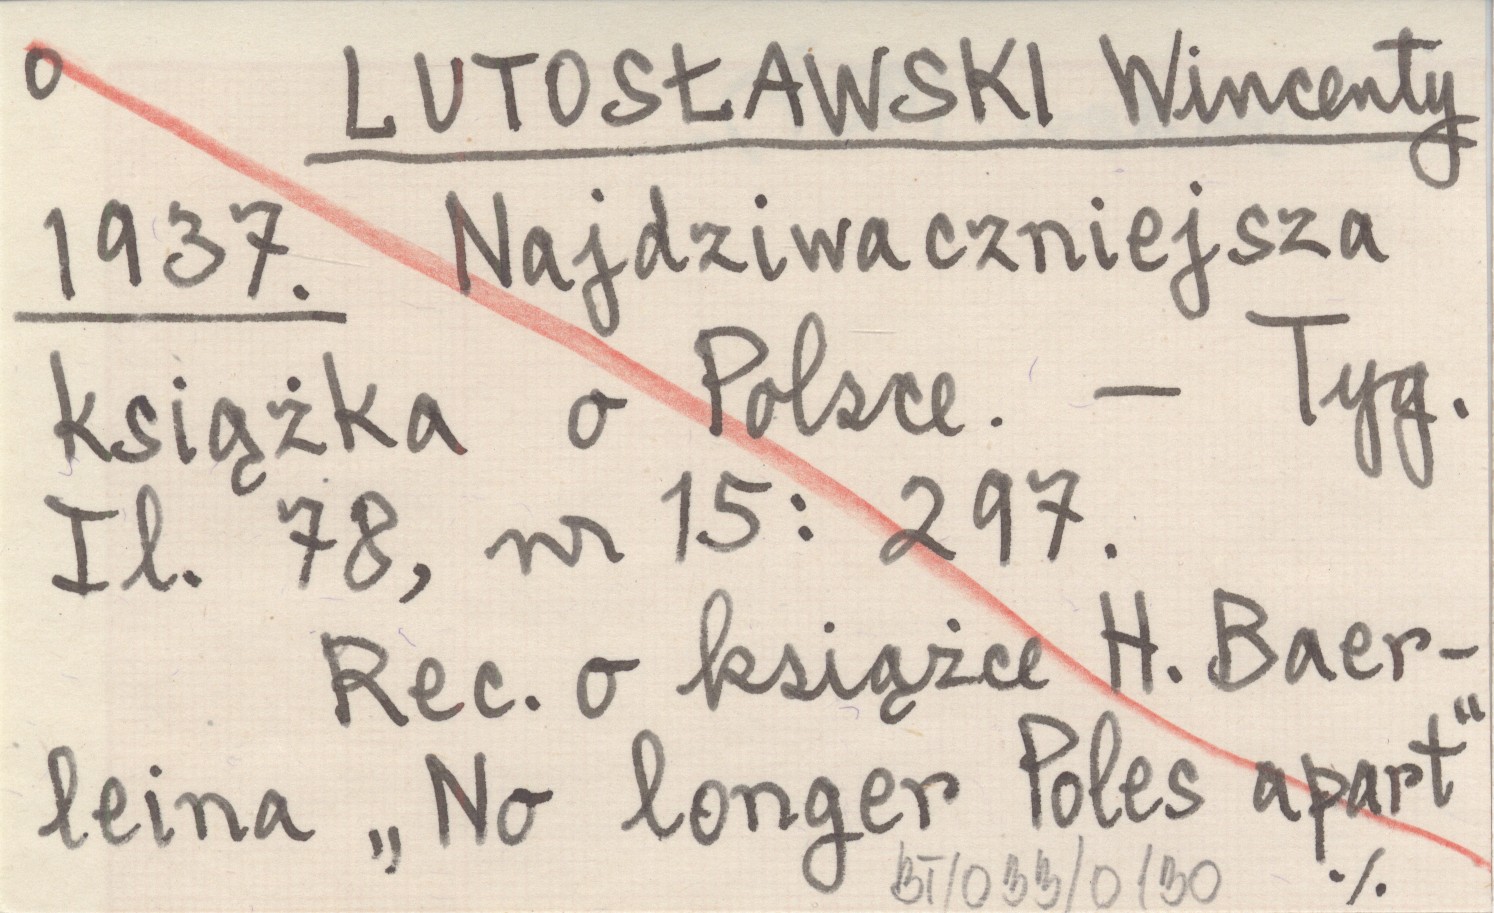 o LUTOSŁAWSKI Wincenty
1937. Najdziwaczniejsza
książka o Polsce. — Tyg.
Il. 78, nr 15: 297.
Rec. o książce H. Baer-
leina „No longer Poles apart“
BI/033/0/30 ./.